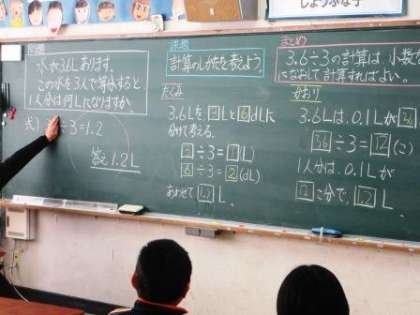 水が3.6Lあります。
この水を3人で等分すると
1人分は何Lになりますか
式) ÷3=1.2
答え 1.2L
計算のしかたを考えよう。
たくみ
3.6Lを 3 Lと 6 dLに
分けて考える。
3 ÷3= 1 (L)
6 ÷3= 2 (dL)
あわせて 1.2 L
まとめ
3.6÷3の計算は、小数を
になおして計算すればよい。
かおり
3.6Lは、0.1Lが 36
36 ÷3= 12 (こ)
1人分は、0.1Lが
12 こ分で、 1.2 L